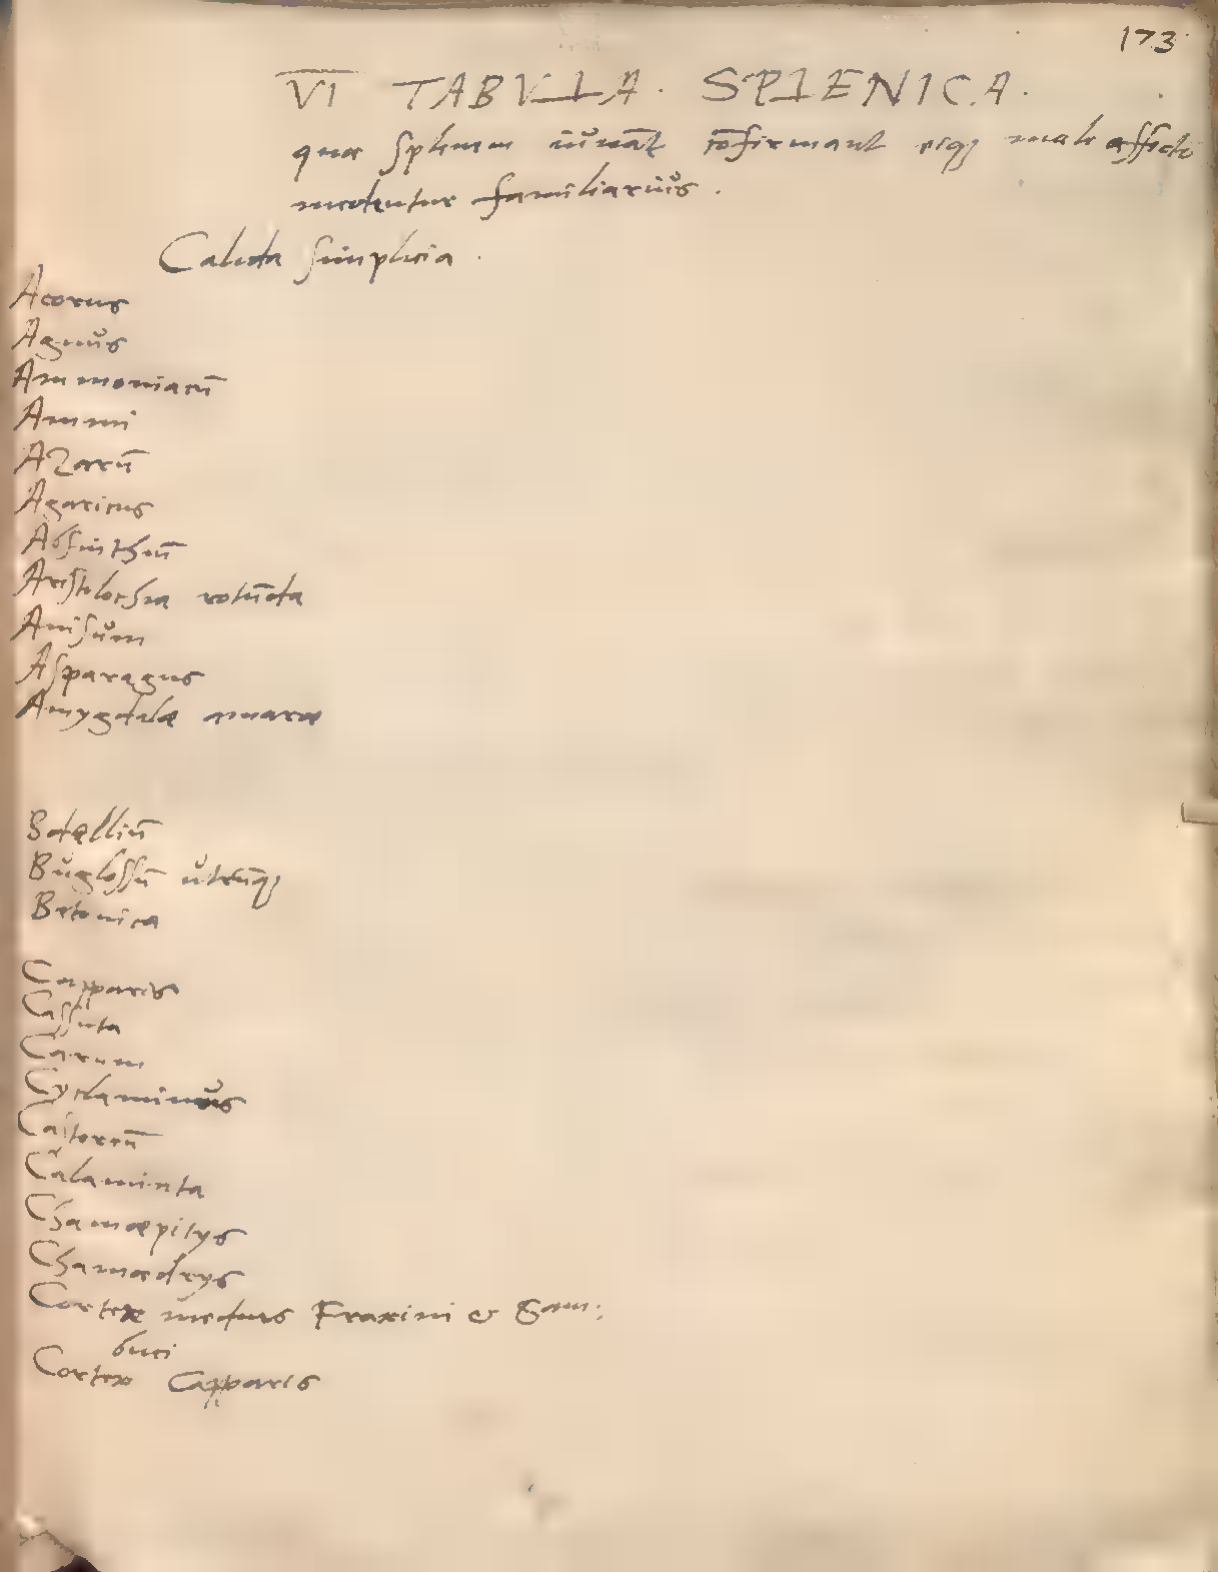 173
VI TABVLA. SPLENICA.
quæ splenem iuuāt cōfirmant eiq; male affecto
medentur familiarius.
Calida simplicia.
Acorus
Agnus
Ammoniacū
Ammi
Azarū
Agaricus
Absinthiū
Aristolochia rotūda
Anisum
Asparagus
Amygdalæ amaræ
Bdelliū
Buglossū utrūq;
Betonica
Capparis
Cassuta
Carum
Cyclaminus
Castoreū
Calaminta
Chamæpitys
Chamædrys
Cortex medius Fraxini & Sam:
buci
Cortex Capparis